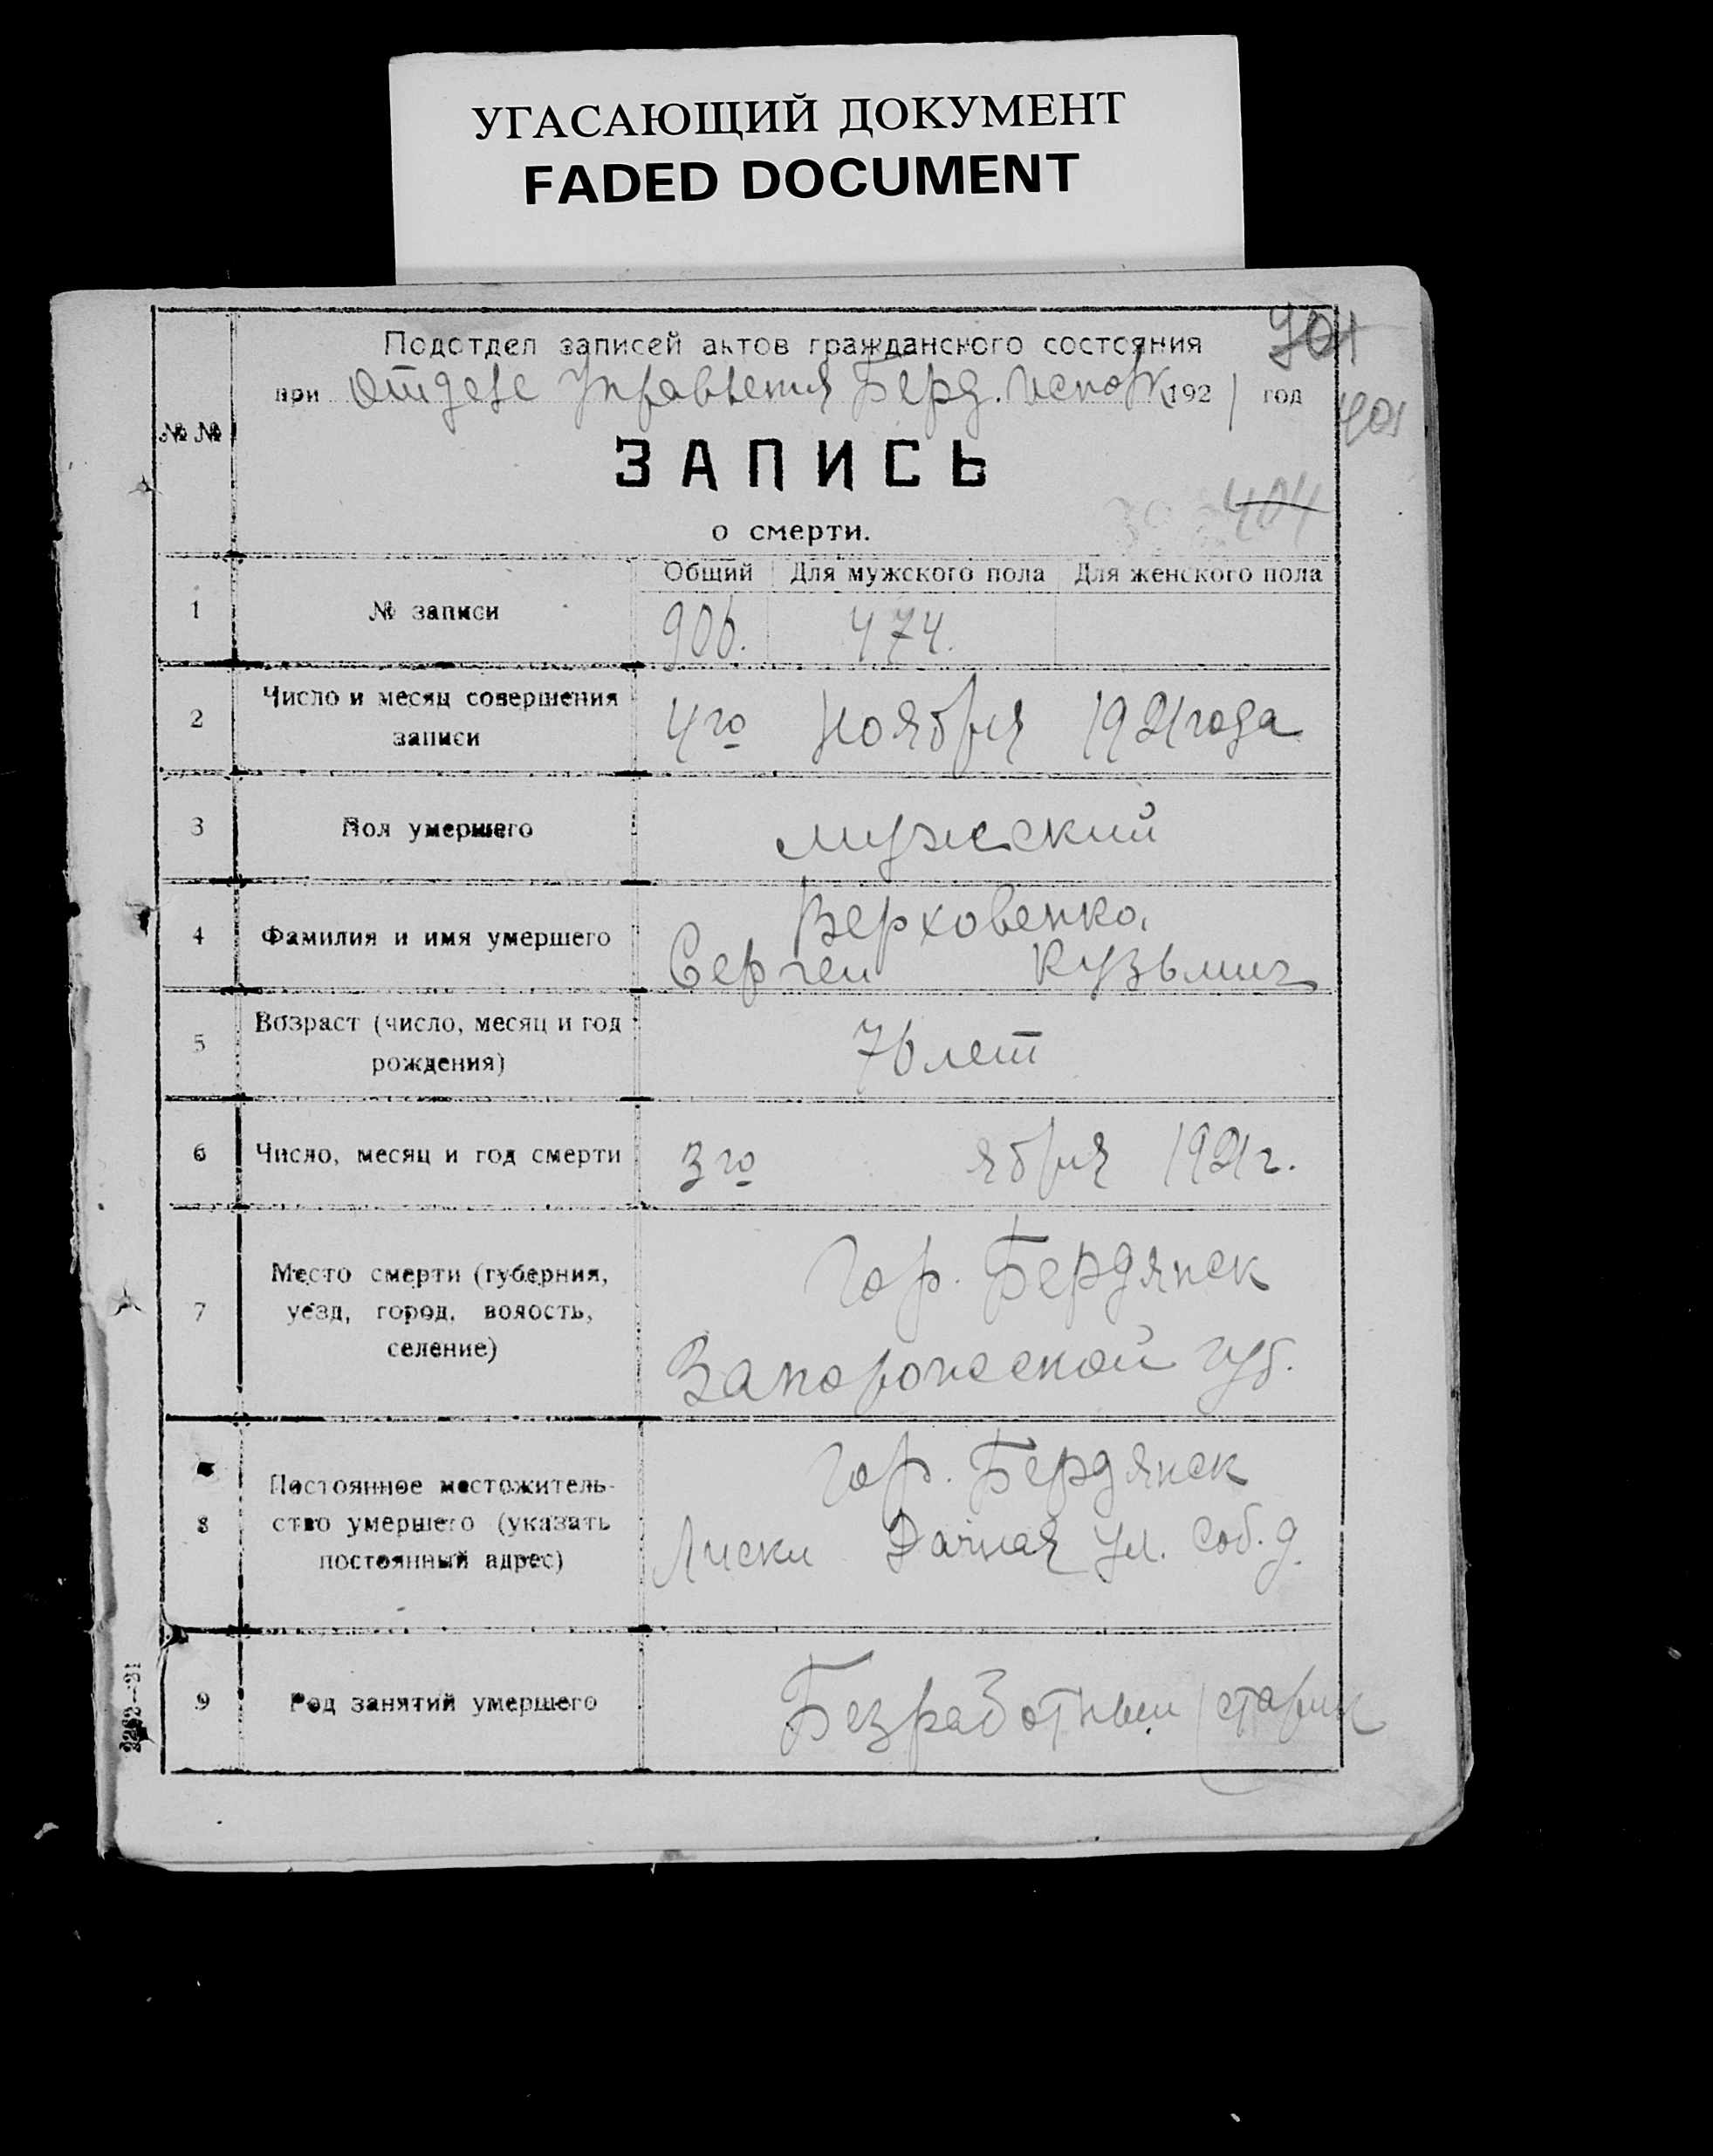 УГАСАЮЩИЙ ДОКУМЕНТ
FADED DOCUMENT
Подотдел записей актов гражданского состояния
при Отделе Управления Берд. 1921 год
№ №
401
ЗАПИСЬ
404
о смерти.
Общий Для мужского пола Для женского пола
1 № записи 906. 474.
2 Число и месяц совершения
записи 4го Ноября 1921 года
3 Пол умершего мужеский
4 Фамилия и имя умершего Верховенко
Сергей Кузьмич
5 Возраст (число, месяц и год
рождения) 76 лет
6 Число, месяц и год смерти 3го ября 1921 г.
7 Место смерти (губерния,
уезд, город, волость,
селение)
Гор. Бердянск
Запорожеской губ.
8 Постоянное местожитель-
ство умершего (указать
постоянный адрес)
Гор. Бердянск
Лиски Дачная ул. соб. д.
9 Род занятий умершего Безработный старик